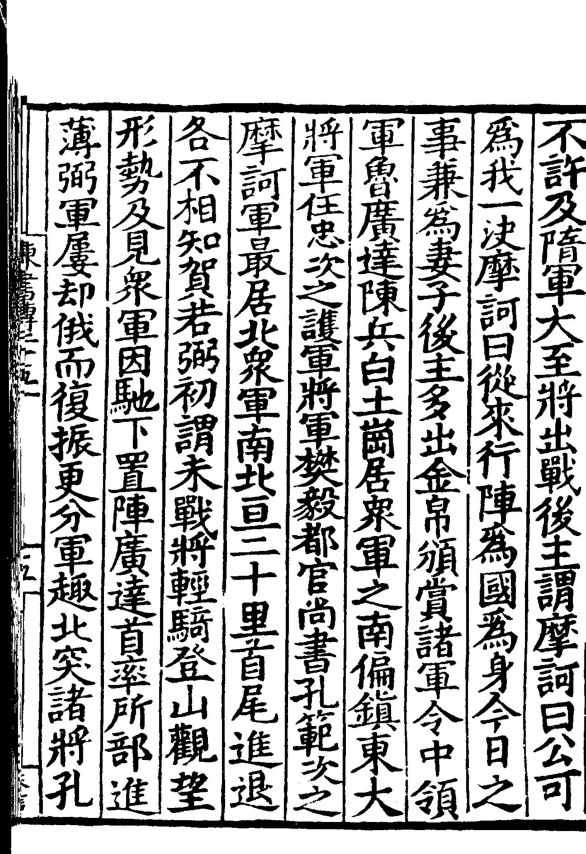 不許及隋軍大至將出戰後主謂摩訶曰公可
爲我一決摩訶曰從來行陣爲國爲身今日之
事兼爲妻子後主多出金帛頒賞諸軍令中領
軍魯廣達陳兵白土崗居衆軍之南偏鎮東大
將軍任忠次之護軍將軍樊毅都官尚書孔範次之
摩訶軍最居北衆軍南北亘二十里首尾進退
各不相知賀若弼初謂未戰將輕騎登山觀望
形勢及見衆軍因馳下置陣廣達首率所部進
薄弼軍屢却俄而復振更分軍趣北突諸將孔